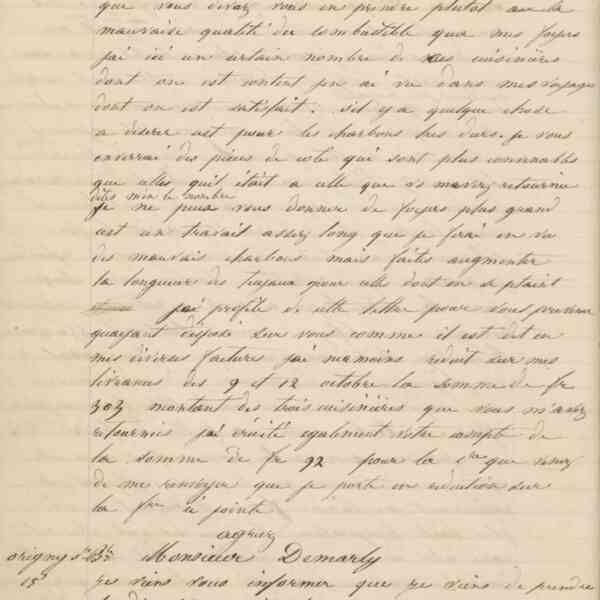 que vous devez vous en prendre plutot au la
mauvaise qualité du combustible qua mes foyers
jai ici un certain nombre de ces cuisinières
dont on est content jen ai vu dans mes voyages
dont on est satisfait. sil y a quelque chose
a désirer cest pour les charbons tres durs. je vous
enverrai des pieces de cote qui sont plus convenables
que celles quil était a celle que vs mavez retournée
dites moi le nombre
je ne puis vous donner de foyers plus grand
cest un travail assez long que je ferai en vu
des mauvais charbons mais faites augmenter
la longueur des tuyaux pour celles dont on se plaint
jai profité de cette lettre pour vous prévenir
quayant disposé sur vous comme il est dit en
mes diverses factures jai neamoins réduit sur mes
livraisons des 9 et 12 octobre la somme de fr
303 montant des trois cuisinières que vous m'avez
retournées jai crédité egalement votre compte de
la somme de fr 92 pour la que venez
de me renvoyer que je porte en réduction sur
la fre ci jointe
agréez
origny ste Bte Monsieur Demarly
15d je viens vous informer que je viens de prendre